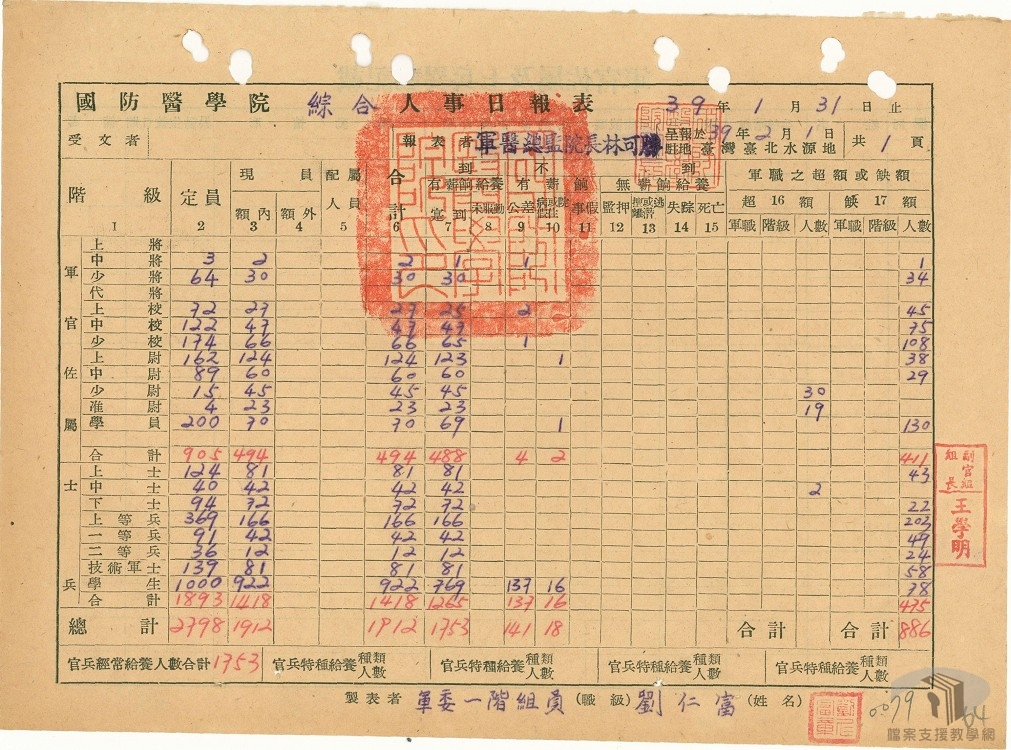 國防醫學院 綜合 人事日報表 39年1月31日止
受文者 報表者 軍醫總監院長林可勝 呈報於39年2月1日 駐地臺灣臺北水源地 共1頁
階級 定員 現員 配屬人員 合計 到 不到 軍職之超額或缺額
額內 額外 有薪餉給養 有薪餉 無薪餉給養 超16額 缺17額
公差 事假 監押 失踪 死亡 軍職 階級 人數 軍職 階級 人數
1 2 3 4 5 6 7 8 9 10 11 12 13 14 15
軍官佐屬
上將
中將 3 2 2 1 1 1
少將 64 30 30 30 34
代將
上校 72 27 27 25 2 45
中校 122 47 47 47 75
少校 174 66 66 65 1 108
上尉 162 124 124 123 1 38
中尉 89 60 60 60 29
少尉 15 45 45 45 30
准尉 4 23 23 23 19
學員 200 70 70 69 1 130
合計 905 494 494 488 4 2 411
士兵
上士 124 81 81 81 43
中士 40 42 42 42 2
下士 94 72 72 72 22
上等兵 369 166 166 166 203
一等兵 91 42 42 42 49
二等兵 36 12 12 12 24
技術軍士 139 81 81 81 58
學生 1000 922 922 769 137 16 78
合計 1893 1418 1418 1265 137 16 475
總計 2798 1912 1912 1753 141 18 合計 合計 886
官兵經常給養人數合計1753 官兵特種給養種類人數 官兵特種給養種類人數 官兵特種給養種類人數 官兵特種給養種類人數
製表者 軍委一階組員 (職級) 劉仁富 (姓名)
副官組組長
王學明
檔案支援教學網